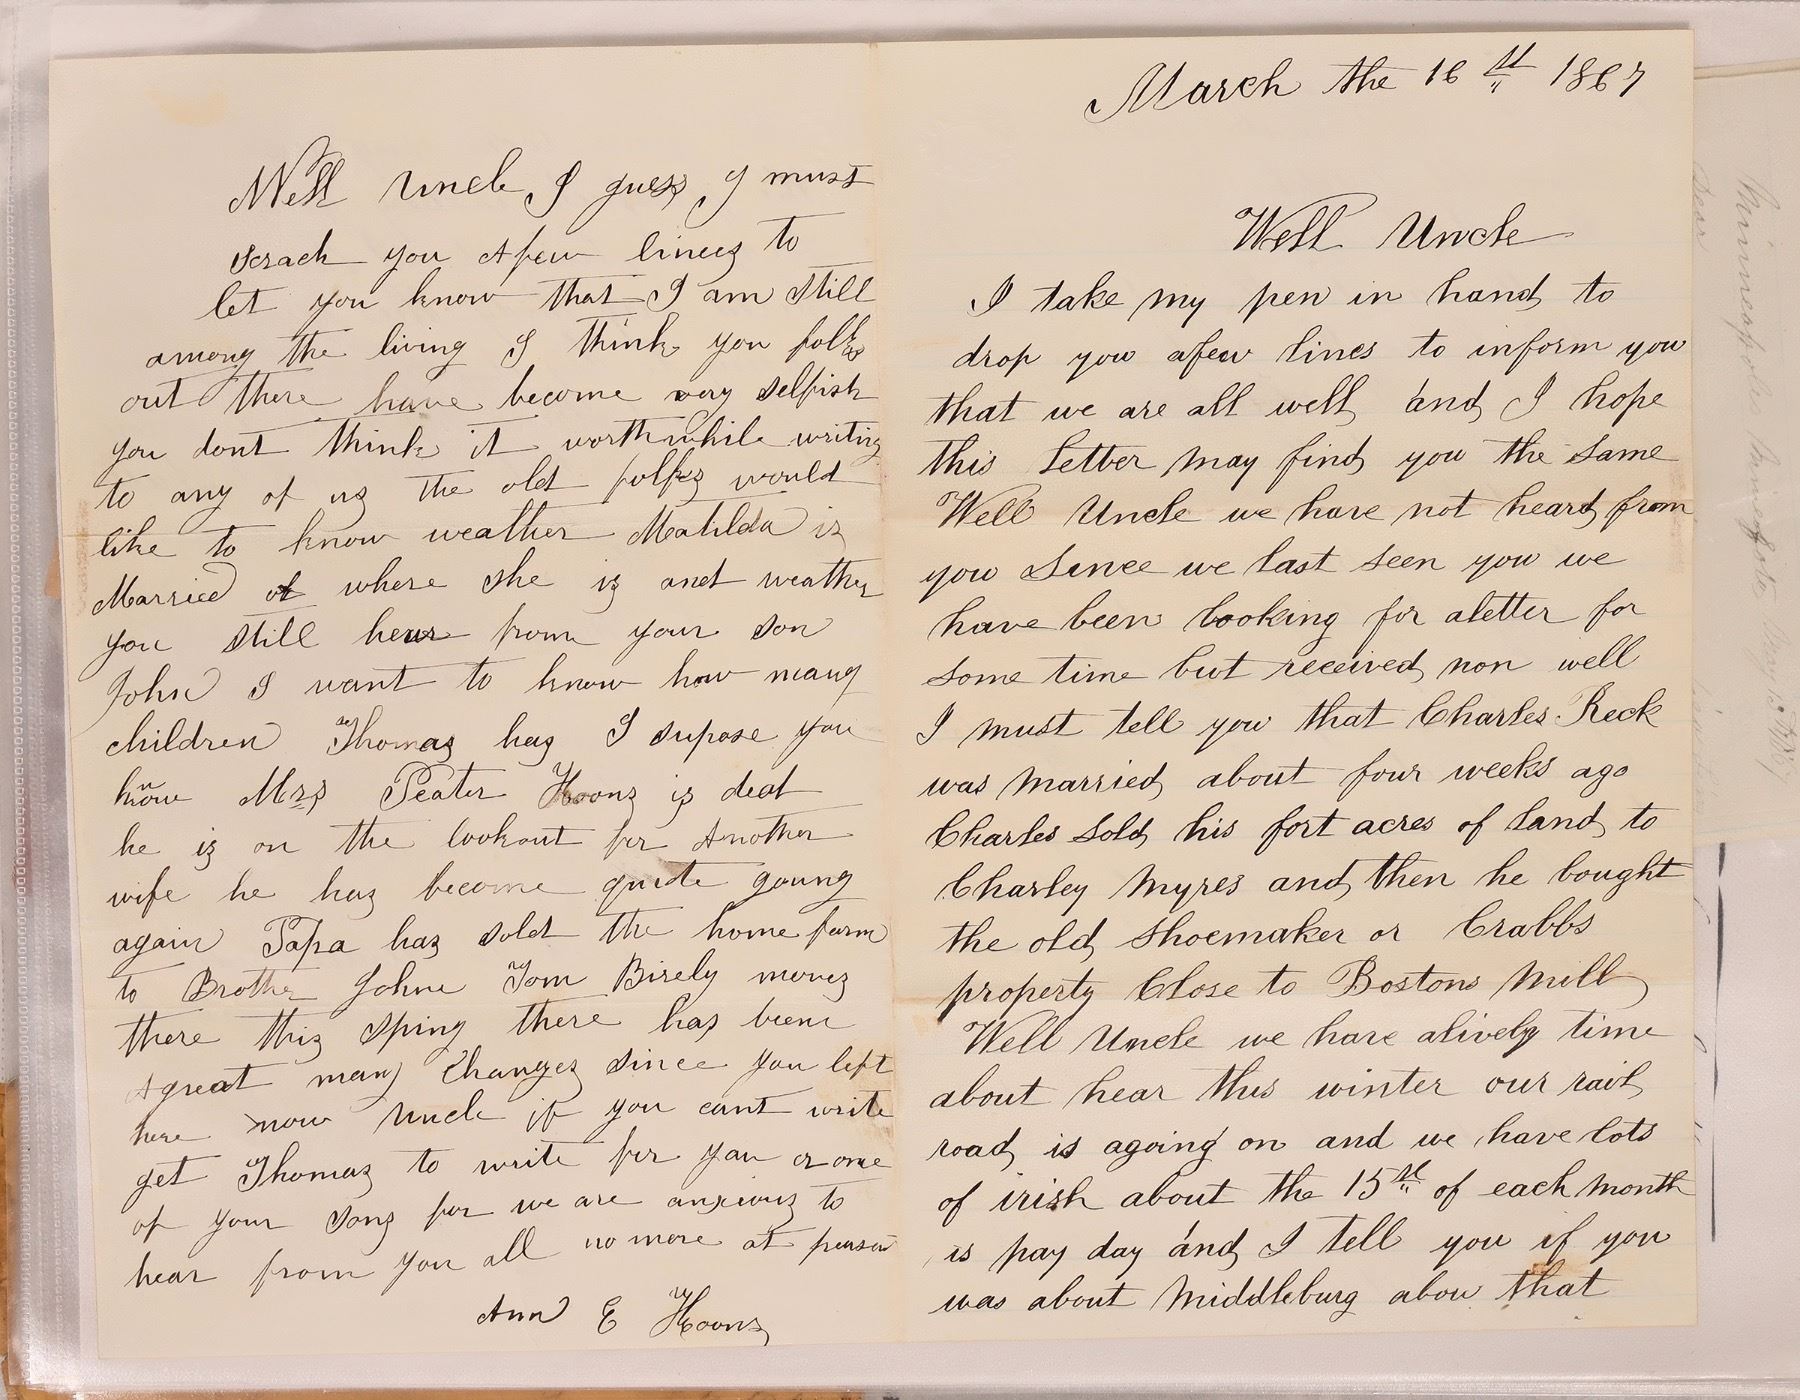 March the 16th 1867
Well Uncle
I take my pen in hand to
drop you afew lines to inform you
that we are all well and I hope
this Letter may find you the same
Well Uncle we have not heard from
you Since we last seen you we
have been looking for aletter for
some time but received non well
I must tell you that Charles Reck
was married about four weeks ago
Charles Sold his fort acres of land to
Charley Myres and then he bought
the old Shoemaker or Crabbs
property Close to Bostons Mill
Well Uncle we have alively time
about hear this winter our rail
road is agoing on and we have lots
of irish about the 15th of each month
is pay day and I tell you if you
was about Middleburg abou that
Well Uncle I guess I must
scrach you afew lines to
let you know that I am still
among the living I think you folks
out there have become very selfish
you dont think it worth while writing
to any of us the old folks would
like to know weather Matilda is
Married or where she is and weather
you still hear from your son
John I want to know how many
children Thomas has I supose you
know Mrs Peater Koons is dead
he is on the lookout for Another
wife he has become quite young
again Papa has sold the home farm
to Brother Johne Tom Birely moves
there this sping there has been
Agreat many Changes since you left
here now Uncle if you cant write
get Thomas to write for you or one
of your sons for we are anxious to
hear from you all no more at preasen
Ann E Koons